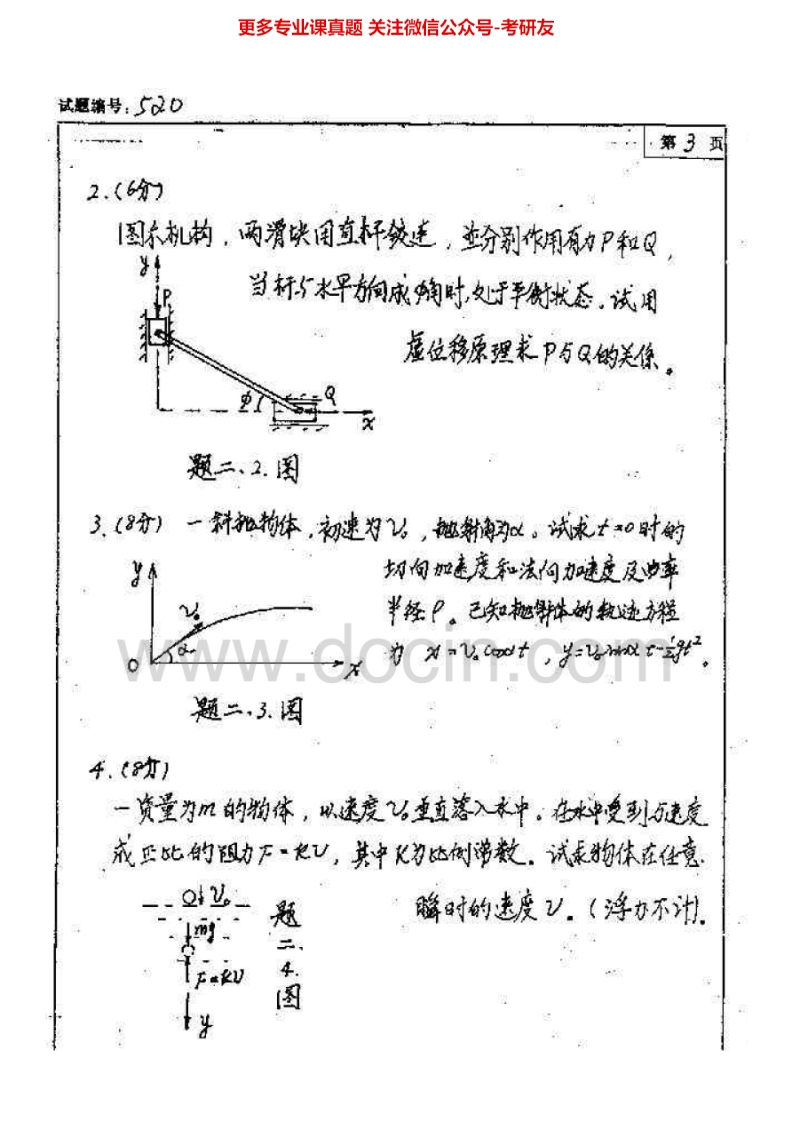 更多专业课真题 关注微信公众号-考研友
试题编号：520
第 3 页
2.(6分)
图示机构，两滑块用直杆铰连，並分别作用有力P和Q，
当杆与水平方向成φ角时，处于平衡状态。试用
虚位移原理求P与Q的关係。
y
P
φ
Q
x
题二、2.图
3.(8分) 一斜抛物体，初速为V₀，抛射角为α。试求t=0时的
切向加速度和法向加速度及曲率
半径ρ。已知抛射体的轨迹方程
为 x=V₀cosαt，y=V₀sinαt-½gt²。
y
V₀
α
O
x
www.docin.com
题二、3.图
4.(8分)
一质量为m的物体，以速度V₀垂直落入水中。在水中受到与速度
成正比的阻力F=KV，其中K为比例常数。试求物体在任意
瞬时的速度V。(浮力不计)。
V₀
mg
F=KV
y
题二、4.图